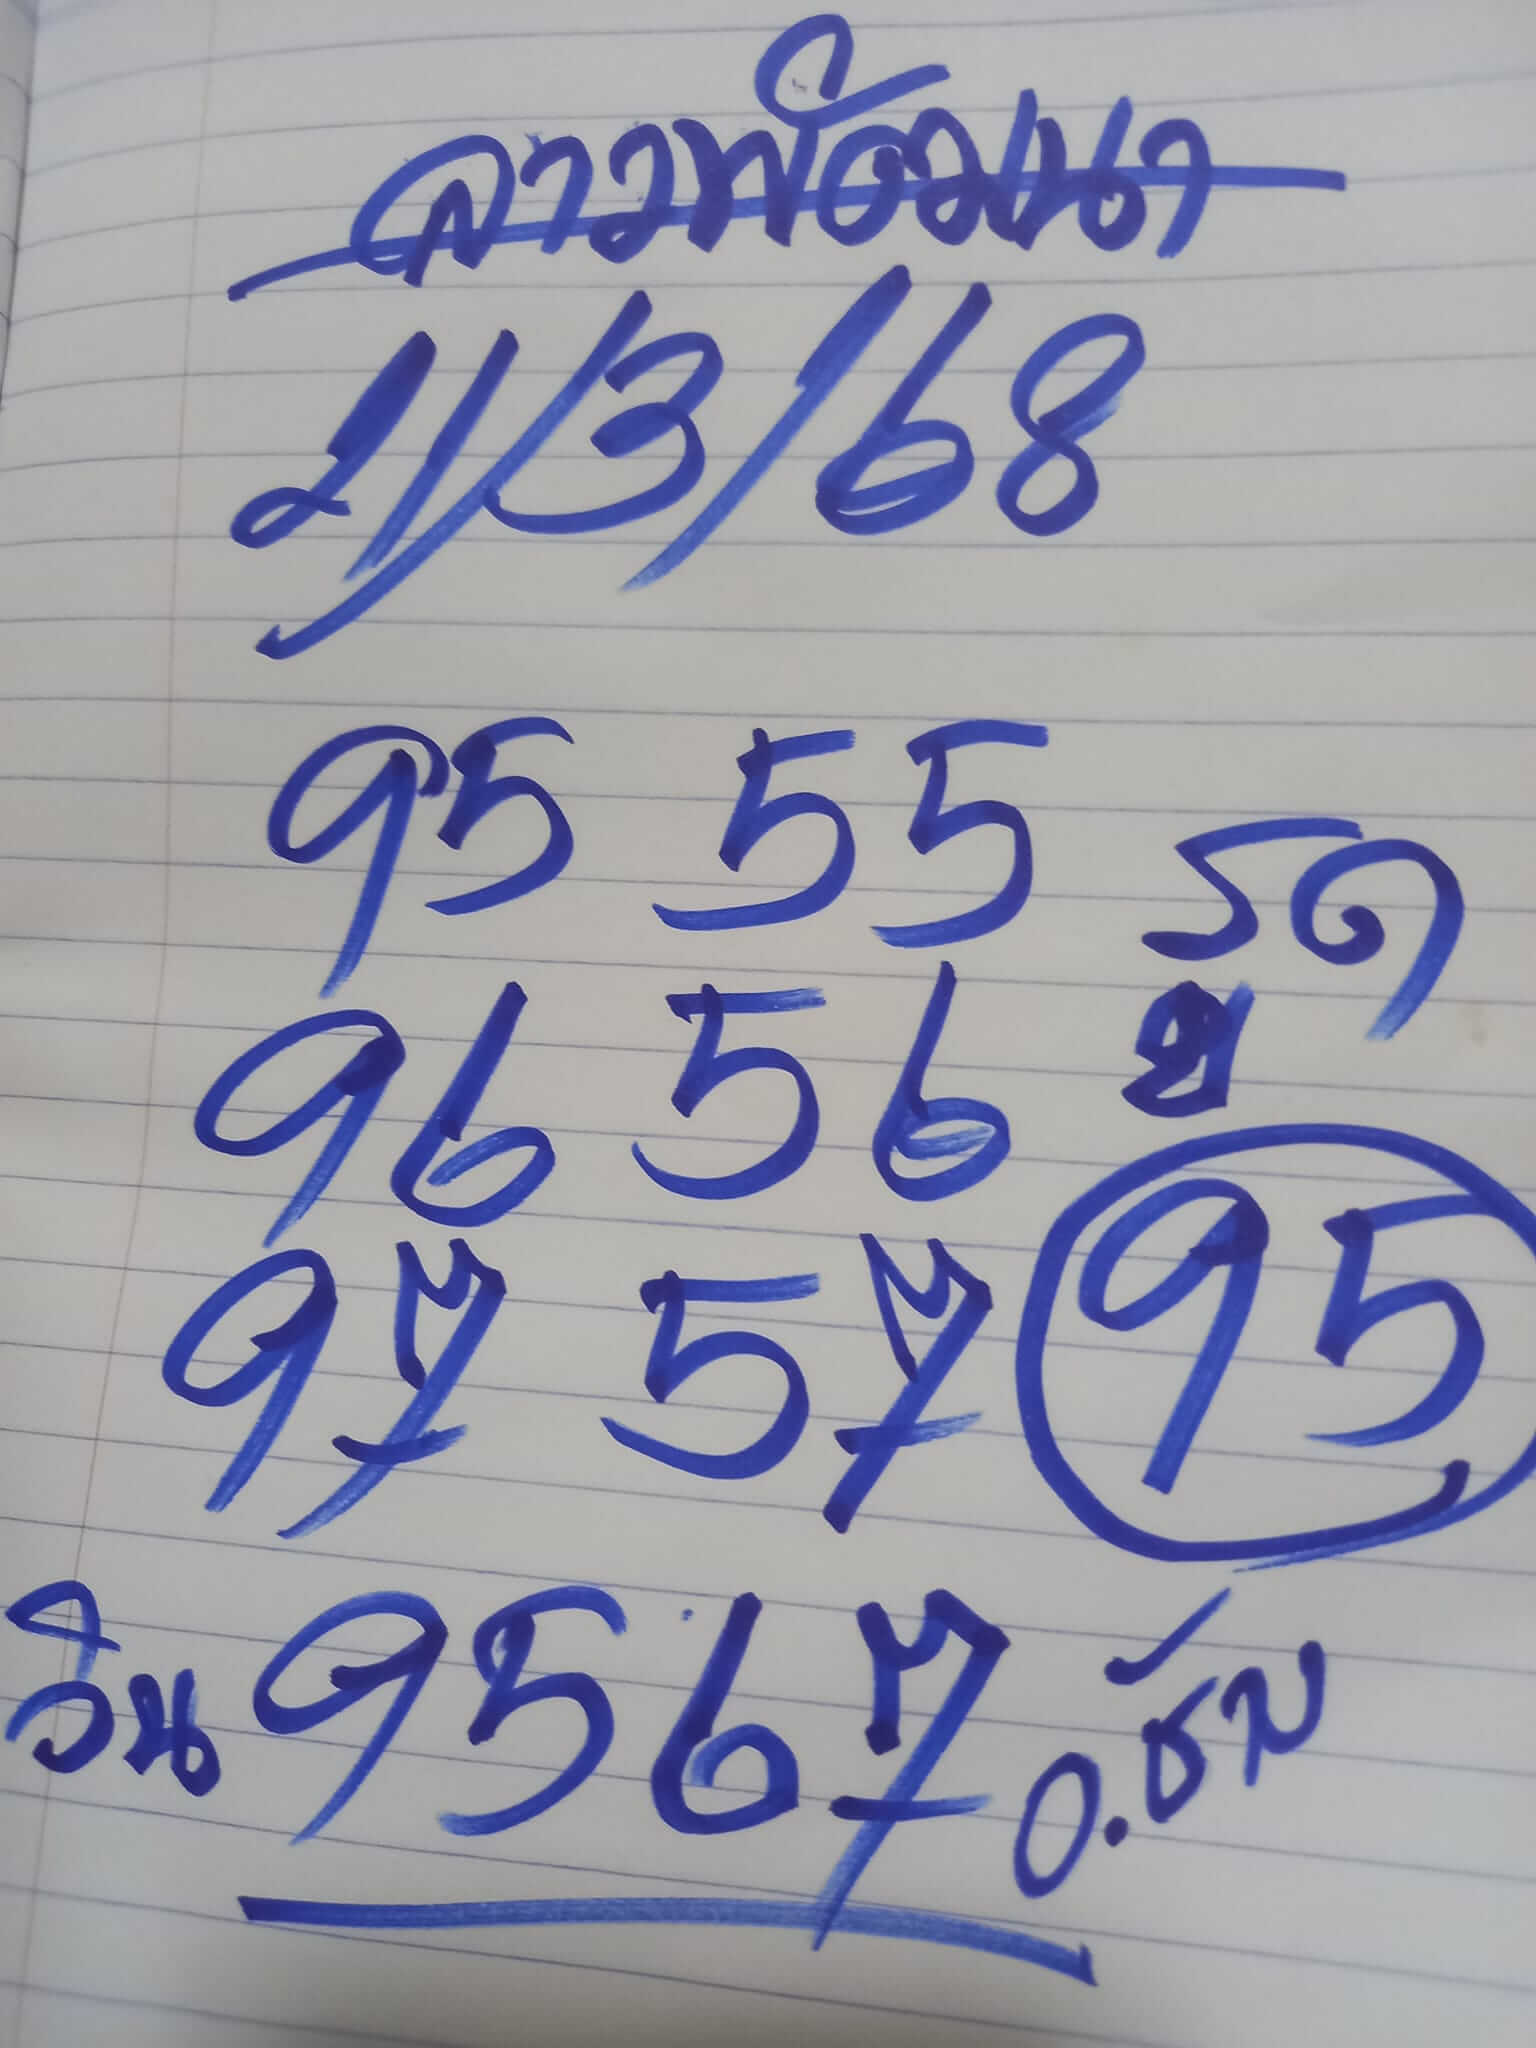 ลาวพัฒนา
21/3/68
95 55 รูด
96 56 19
97 57 95
วิน 9567 อ.ชัย